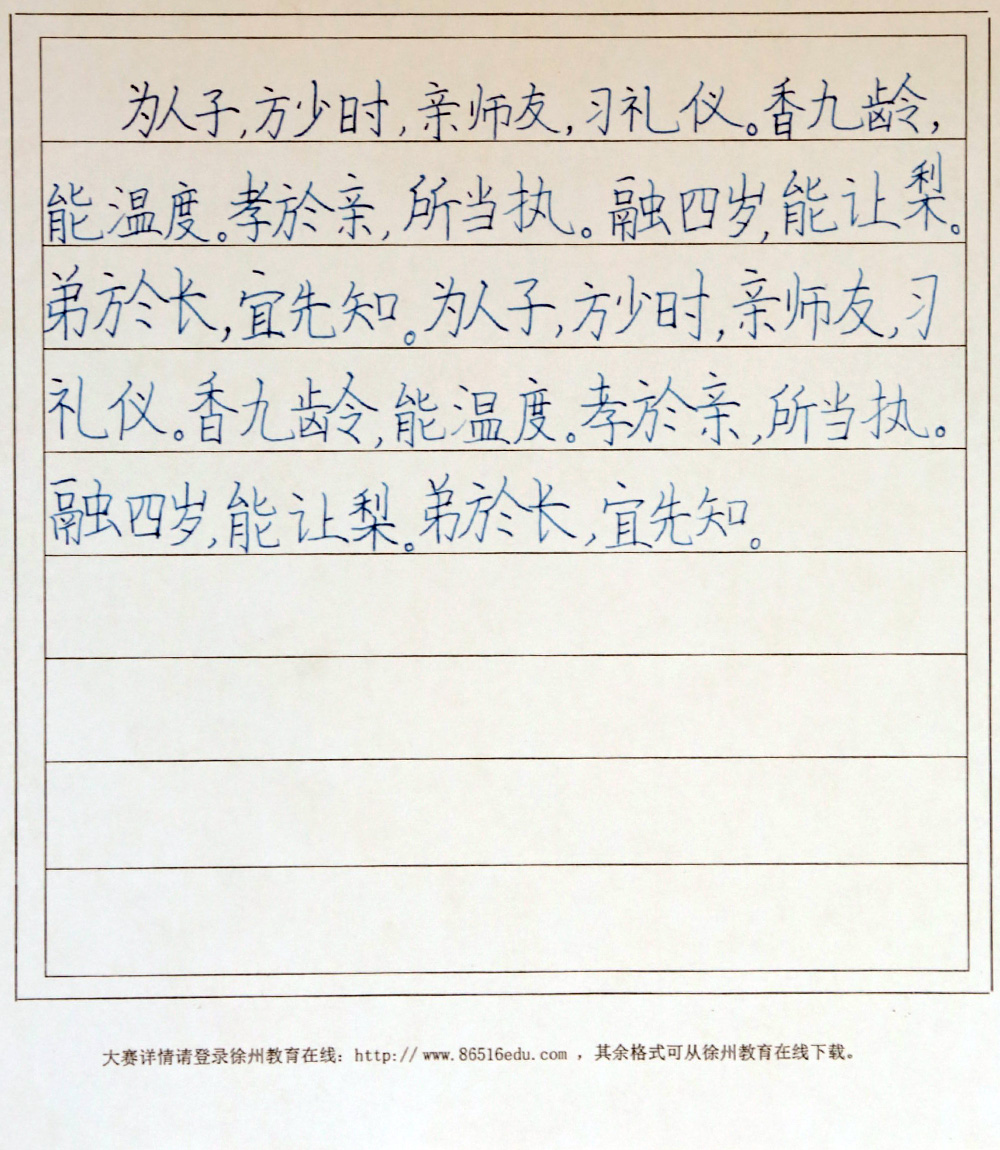 为人子,方少时,亲师友,习礼仪。香九龄,
能温度。孝於亲,所当执。融四岁,能让梨。
弟於长,宜先知。为人子,方少时,亲师友,习
礼仪。香九龄,能温度。孝於亲,所当执。
融四岁,能让梨。弟於长,宜先知。
大赛详情请登录徐州教育在线：http://www.86516edu.com ，其余格式可从徐州教育在线下载。